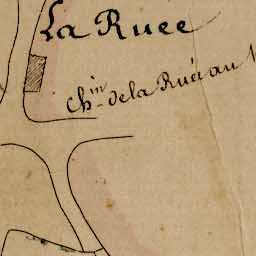 La Ruée
Ch.in de la Ruée au